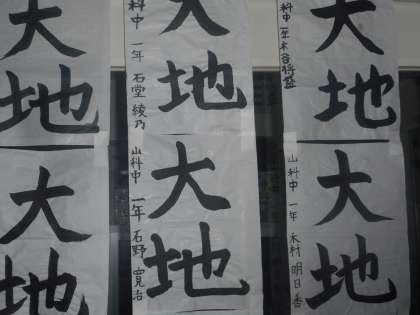 大地
大地
科中 一年 石堂 綾乃
大地
科中 一年
大地
大地
山科中 一年 石野 寛治
大地
山科中 一年 木村 明日香